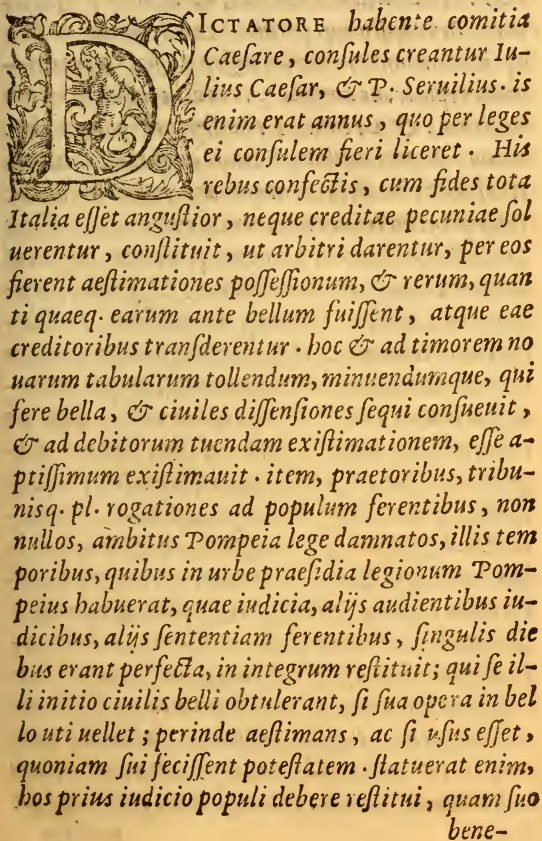 DICTATORE habente comitia
Caeſare, conſules creantur Iu-
lius Caeſar, & P. Seruilius. is
enim erat annus, quo per leges
ei conſulem fieri liceret. His
rebus confectis, cum fides tota
Italia eſſet anguſtior, neque creditae pecuniae ſol
uerentur, conſtituit, ut arbitri darentur, per eos
fierent aeſtimationes poſſeſſionum, & rerum, quan
ti quaeq. earum ante bellum fuiſſent, atque eae
creditoribus tranſderentur. hoc & ad timorem no
uarum tabularum tollendum, minuendumque, qui
fere bella, & ciuiles diſſenſiones ſequi conſueuit,
& ad debitorum tuendam exiſtimationem, eſſe a-
ptiſſimum exiſtimauit. item, praetoribus, tribu-
nisq. pl. rogationes ad populum ferentibus, non
nullos, ambitus Pompeia lege damnatos, illis tem
poribus, quibus in urbe praeſidia legionum Pom-
peius habuerat, quae iudicia, alijs audientibus iu-
dicibus, alijs ſententiam ferentibus, ſingulis die
bus erant perfecta, in integrum reſtituit; qui ſe il-
li initio ciuilis belli obtulerant, ſi ſua opera in bel
lo uti uellet; perinde aeſtimans, ac ſi uſus eſſet,
quoniam ſui feciſſent poteſtatem. ſtatuerat enim,
hos prius iudicio populi debere reſtitui, quam ſuo
bene-